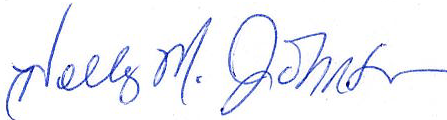 Holly M. Johnson